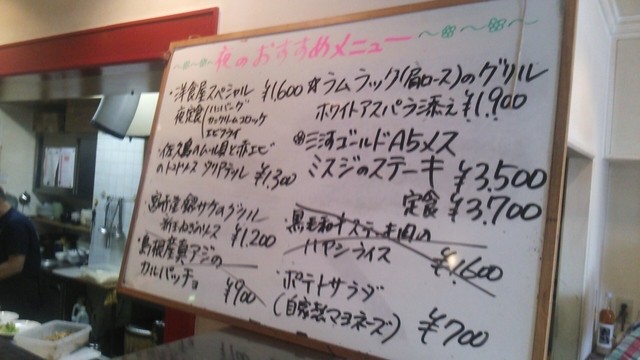 夜のおすすめメニュー
・洋食屋スペシャル ¥1,600
夜定食 ハンバーグ
カニクリームコロッケ
エビフライ
・佐久島のムール貝と赤エビ
のトマトソース タリアテッレ ¥1,300
産銀サケのグリル
ソース ¥1,200
・島根産真アジの
カルパッチョ ¥900
☆ラムラック(肩ロース)のグリル
ホワイトアスパラ添え ¥1,900
三河ゴールドA5メス
ミスジのステーキ ¥3,500
定食 ¥3,700
・黒毛和牛ステーキ肉の
ハヤシライス ¥1,600
・ポテトサラダ
(自家製マヨネーズ) ¥700